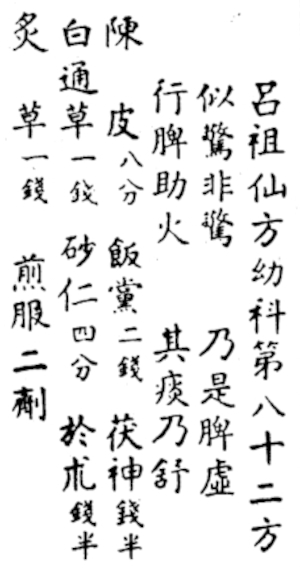 呂祖仙方幼科第八十二方
似驚非驚 乃是脾虛
行脾助火 其痰乃舒
陳皮八分 飯黨二錢 茯神錢半
白通草一錢 砂仁四分 於朮錢半
炙草一錢 煎服二劑